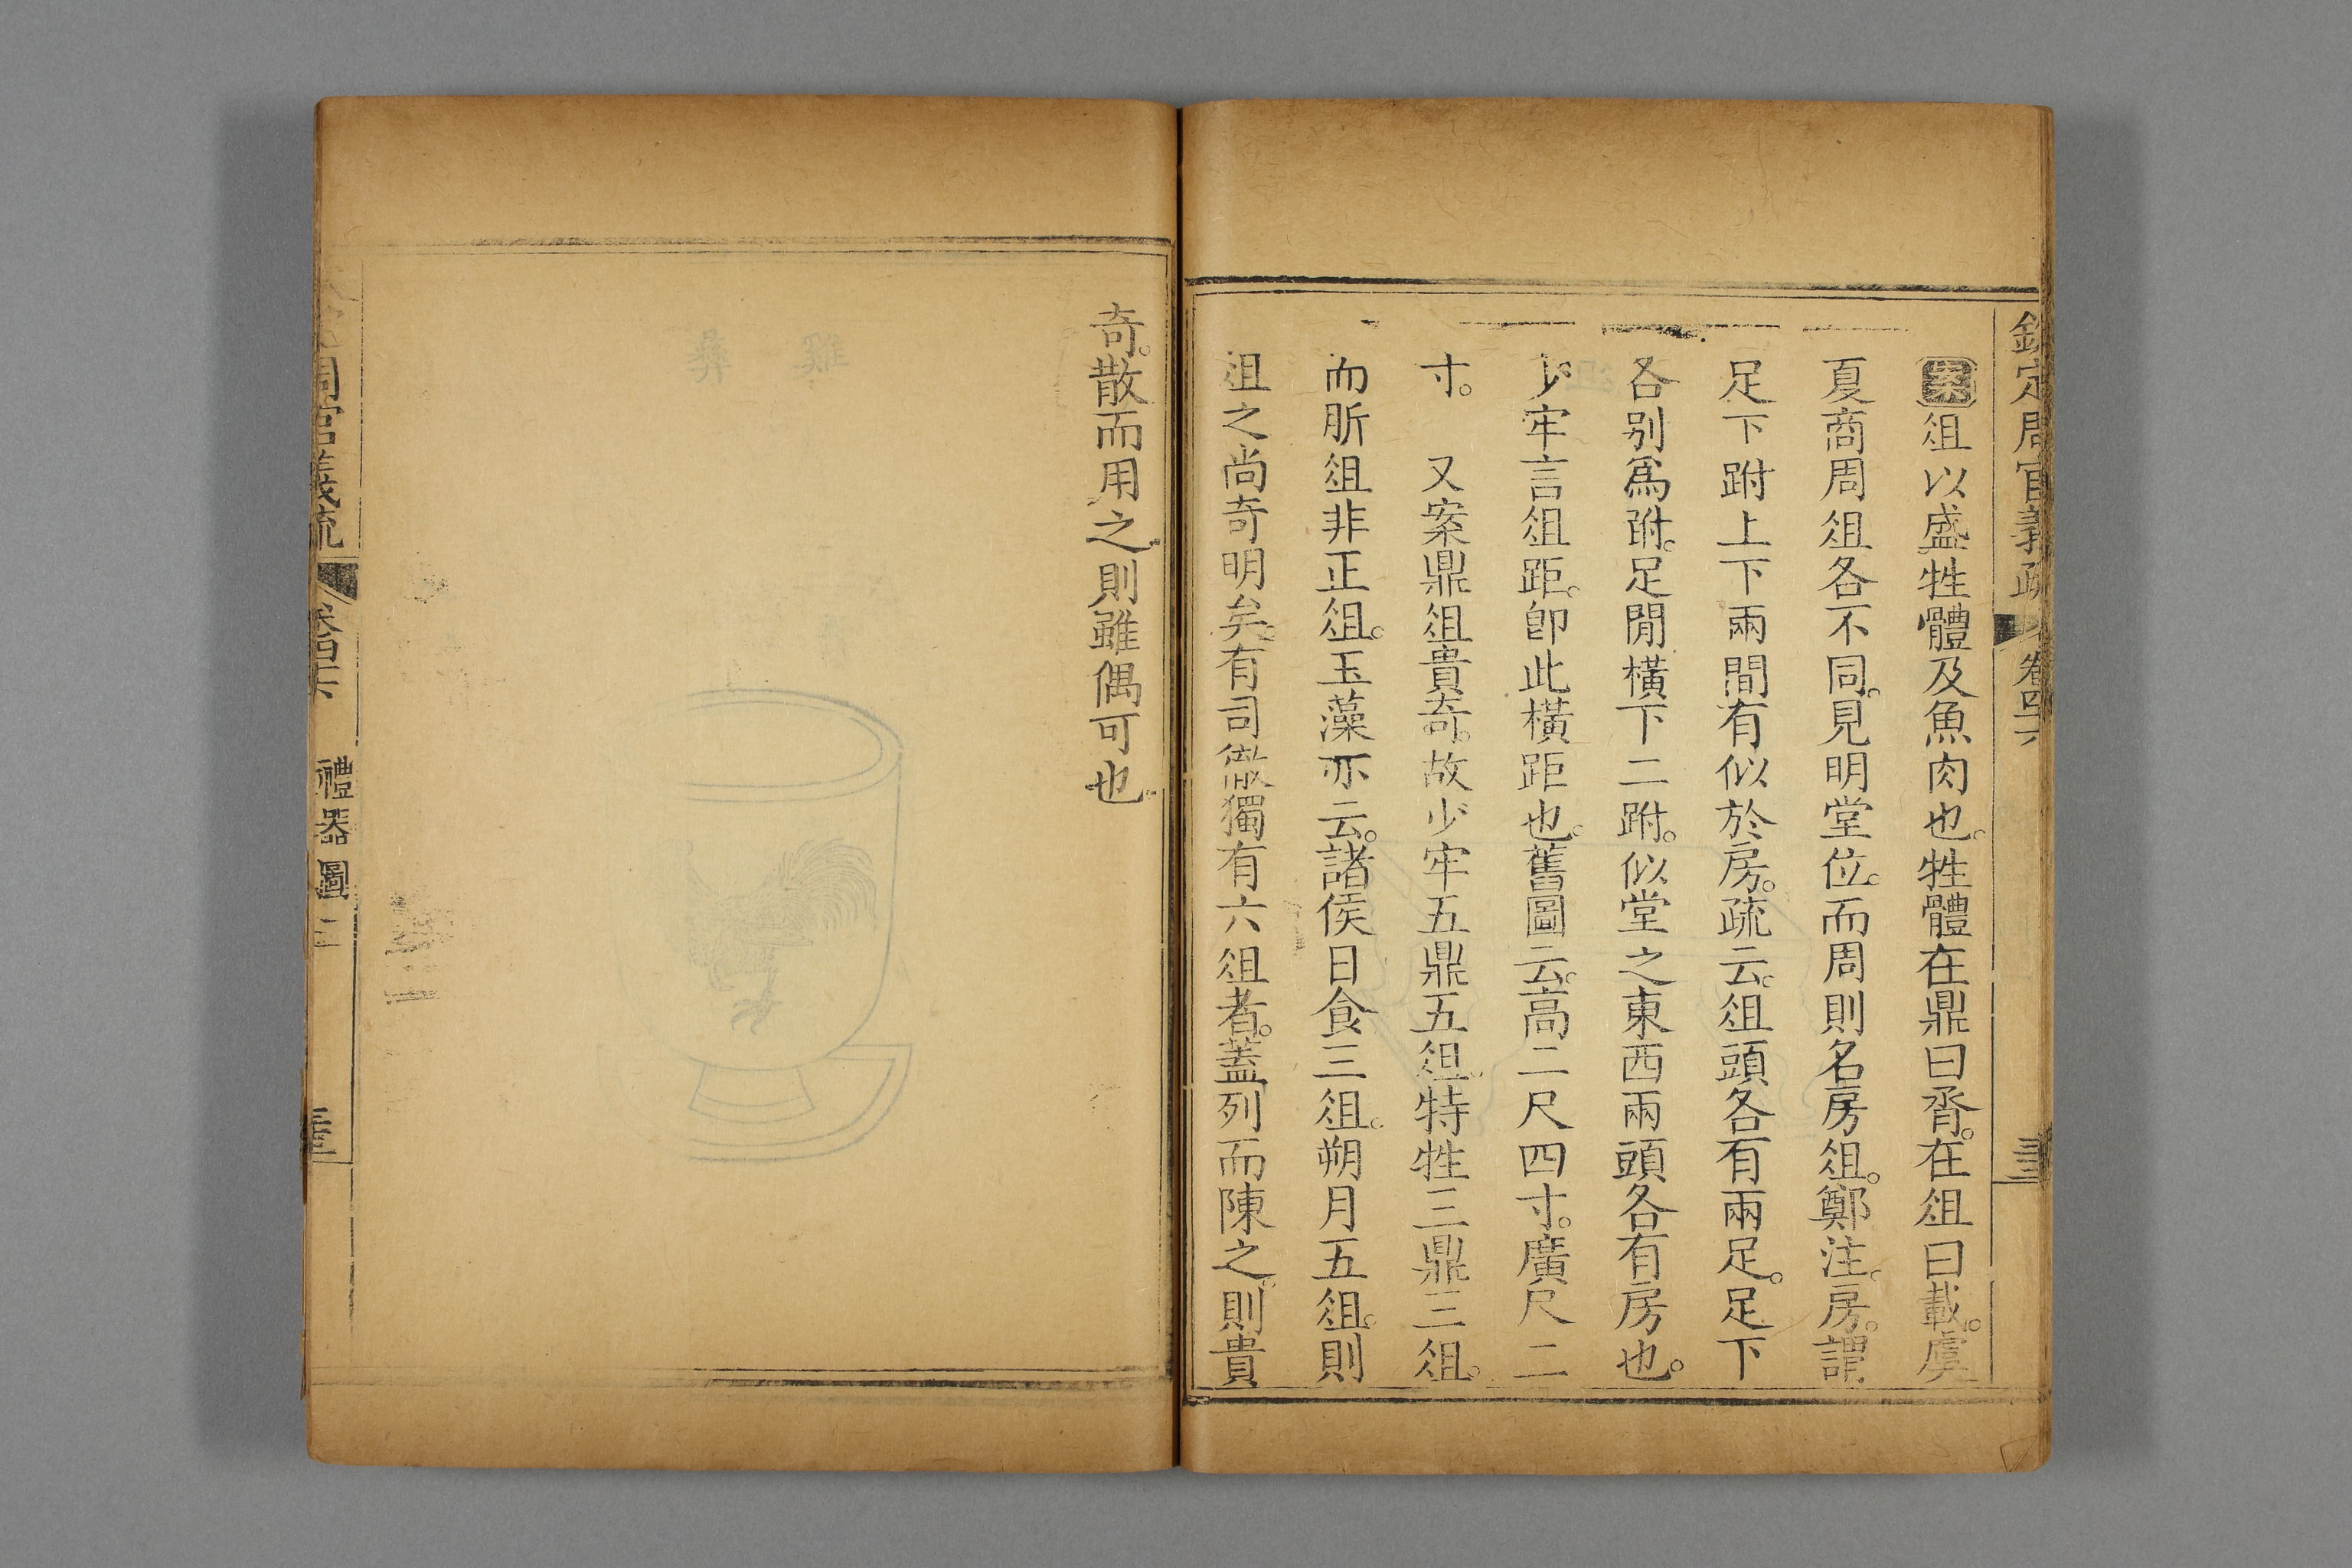 欽定周官義疏 卷四十六
案俎以盛牲體及魚肉也。牲體在鼎曰脀。在俎曰載。虞
夏商周俎各不同。見明堂位。而周則名房俎。鄭注。房。謂
足下跗上下兩間有似於房。疏云。俎頭各有兩足。足下
各別爲跗。足閒橫下二跗。似堂之東西兩頭各有房也。
少牢言俎距。卽此橫距也。舊圖云。高二尺四寸。廣尺二
寸。 又案鼎俎貴奇。故少牢五鼎五俎。特牲三鼎三俎。
而肵俎非正俎。玉藻亦云。諸侯日食三俎。朔月五俎。則
俎之尚奇明矣。有司徹獨有六俎者。蓋列而陳之。則貴
奇。散而用之。則雖偶可也。
周官義疏 卷四十六 禮器圖二
雞彝